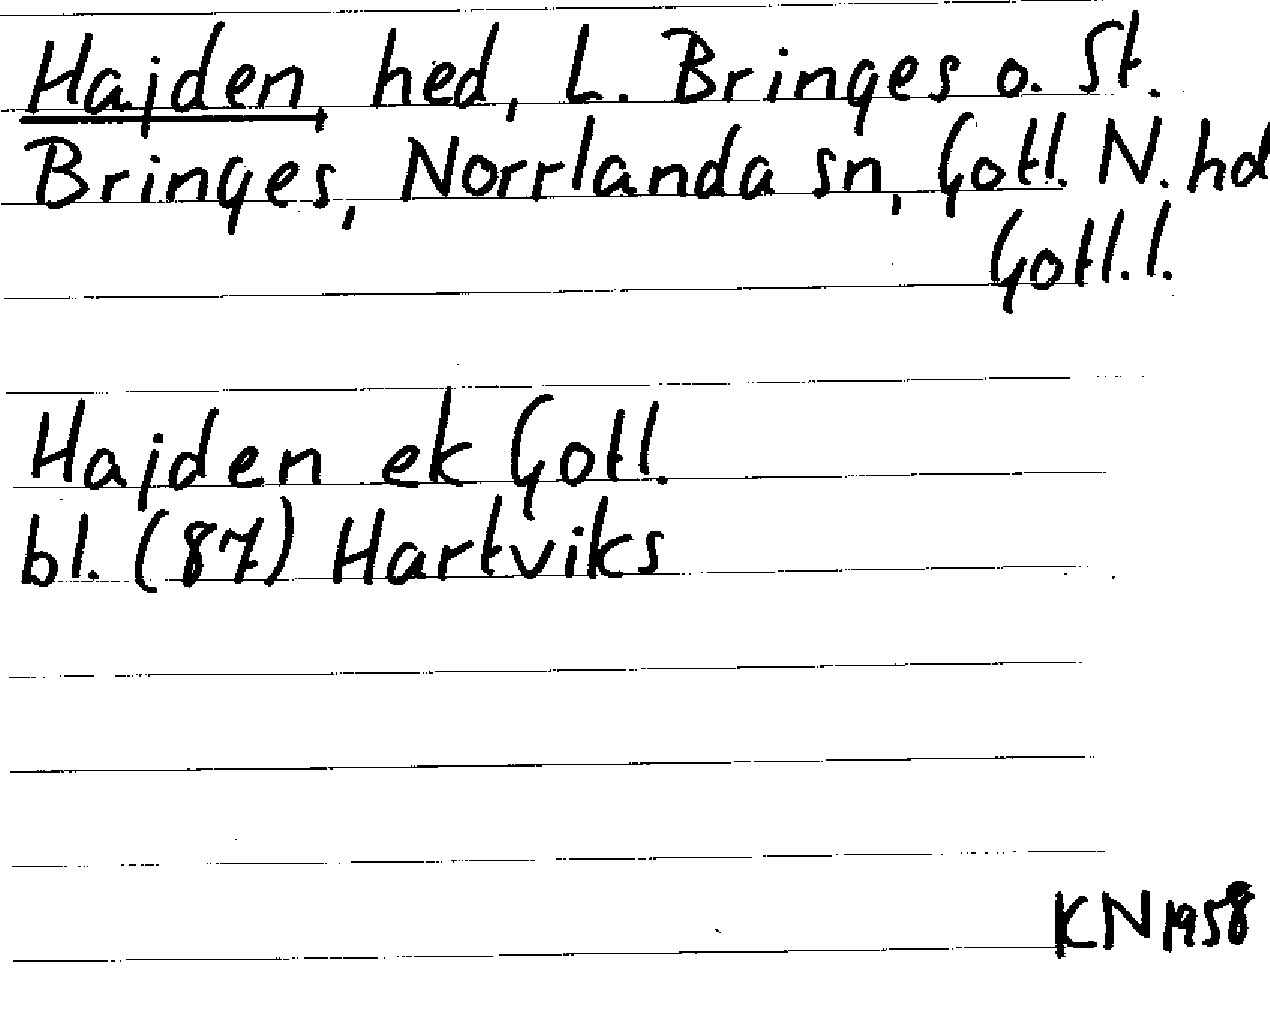 Hajden, hed, L. Bringes o. St.
Bringes, Norrlanda sn, Gotl. N. hd
Gotl. l.
Hajden ek Gotl.
bl. (87) Hartviks
KN 1958